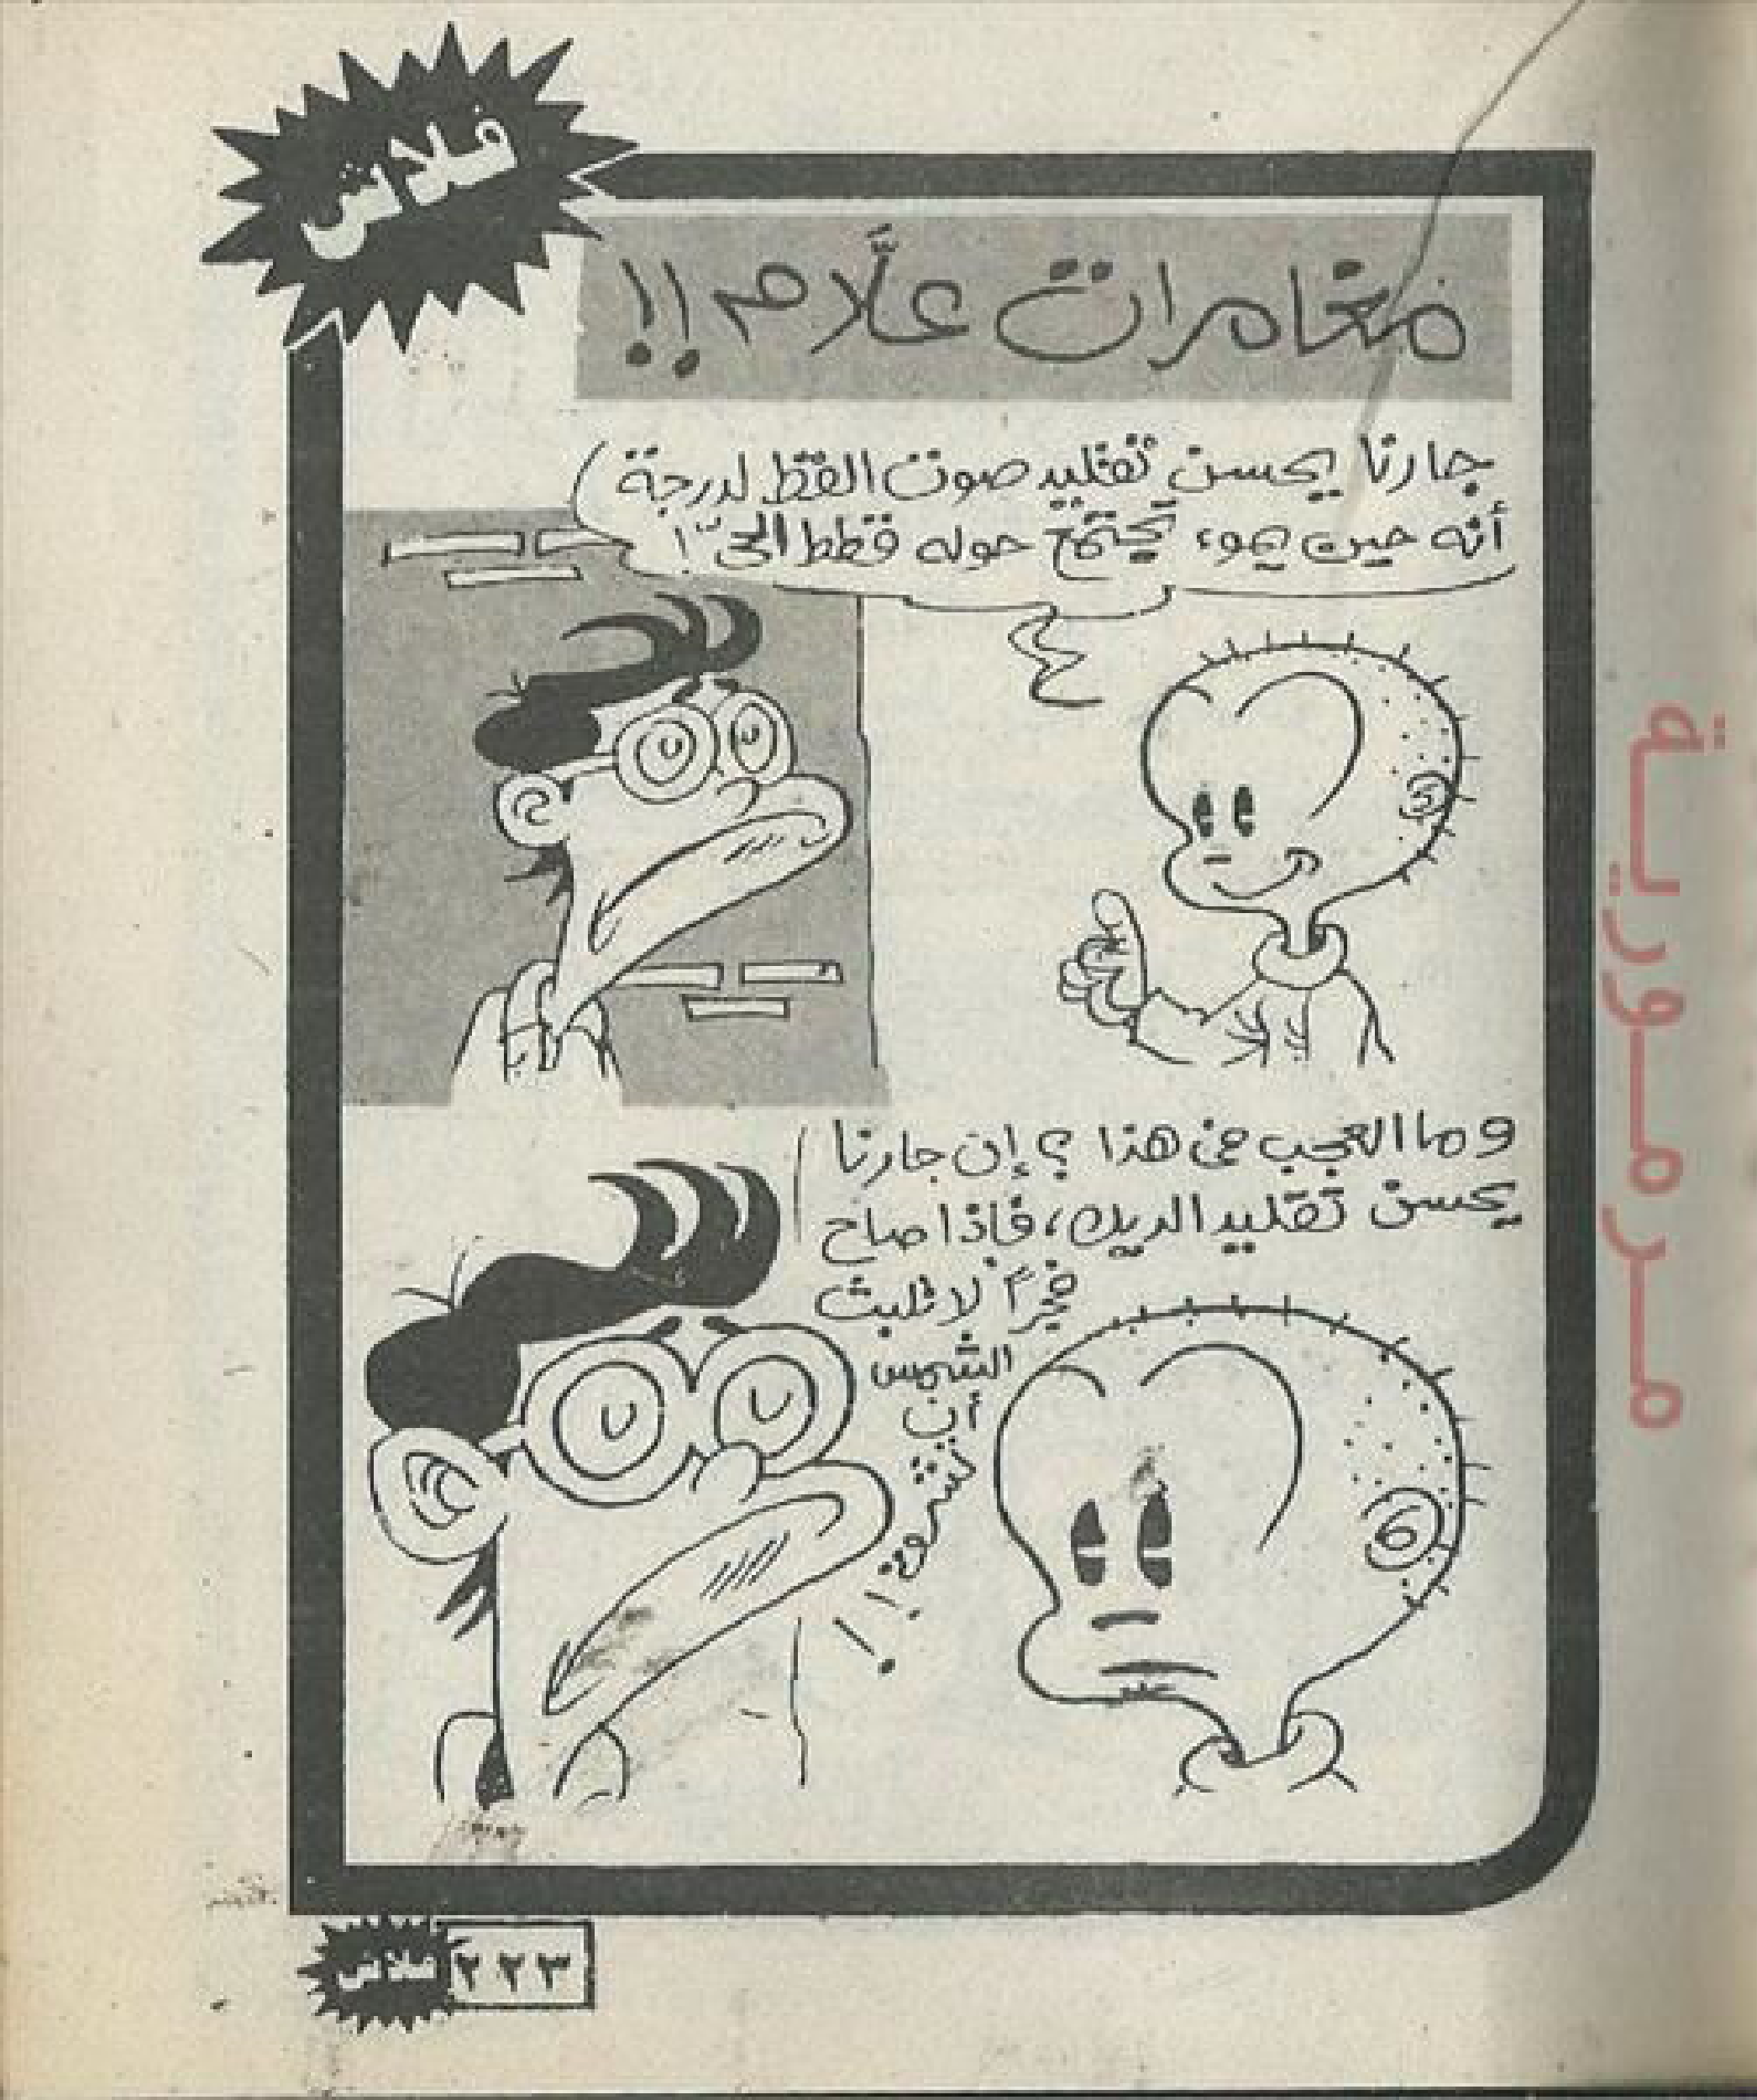 فلاش
مغامرات علَّام !!
جارنا يحسن تقليد صوت القطط لدرجة
أنه حين يموء يجتمع حوله قطط الحىّ !
وما العجب فى هذا ؟ إن جارنا
يحسن تقليد الديك، فإذا صاح
فجرًا لا تلبث
الشمس
أن
تشرق !
!
فلاش ٢٢٣
مرمورية